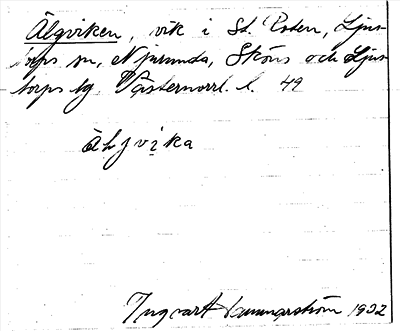 Älgviken, vik i St. Östen, Ljus-
torps sn, Njurunda, Sköns och Ljus-
torps tg Västernorrl. l. 49
Äḷjvika
Ingvart Hammarström 1932